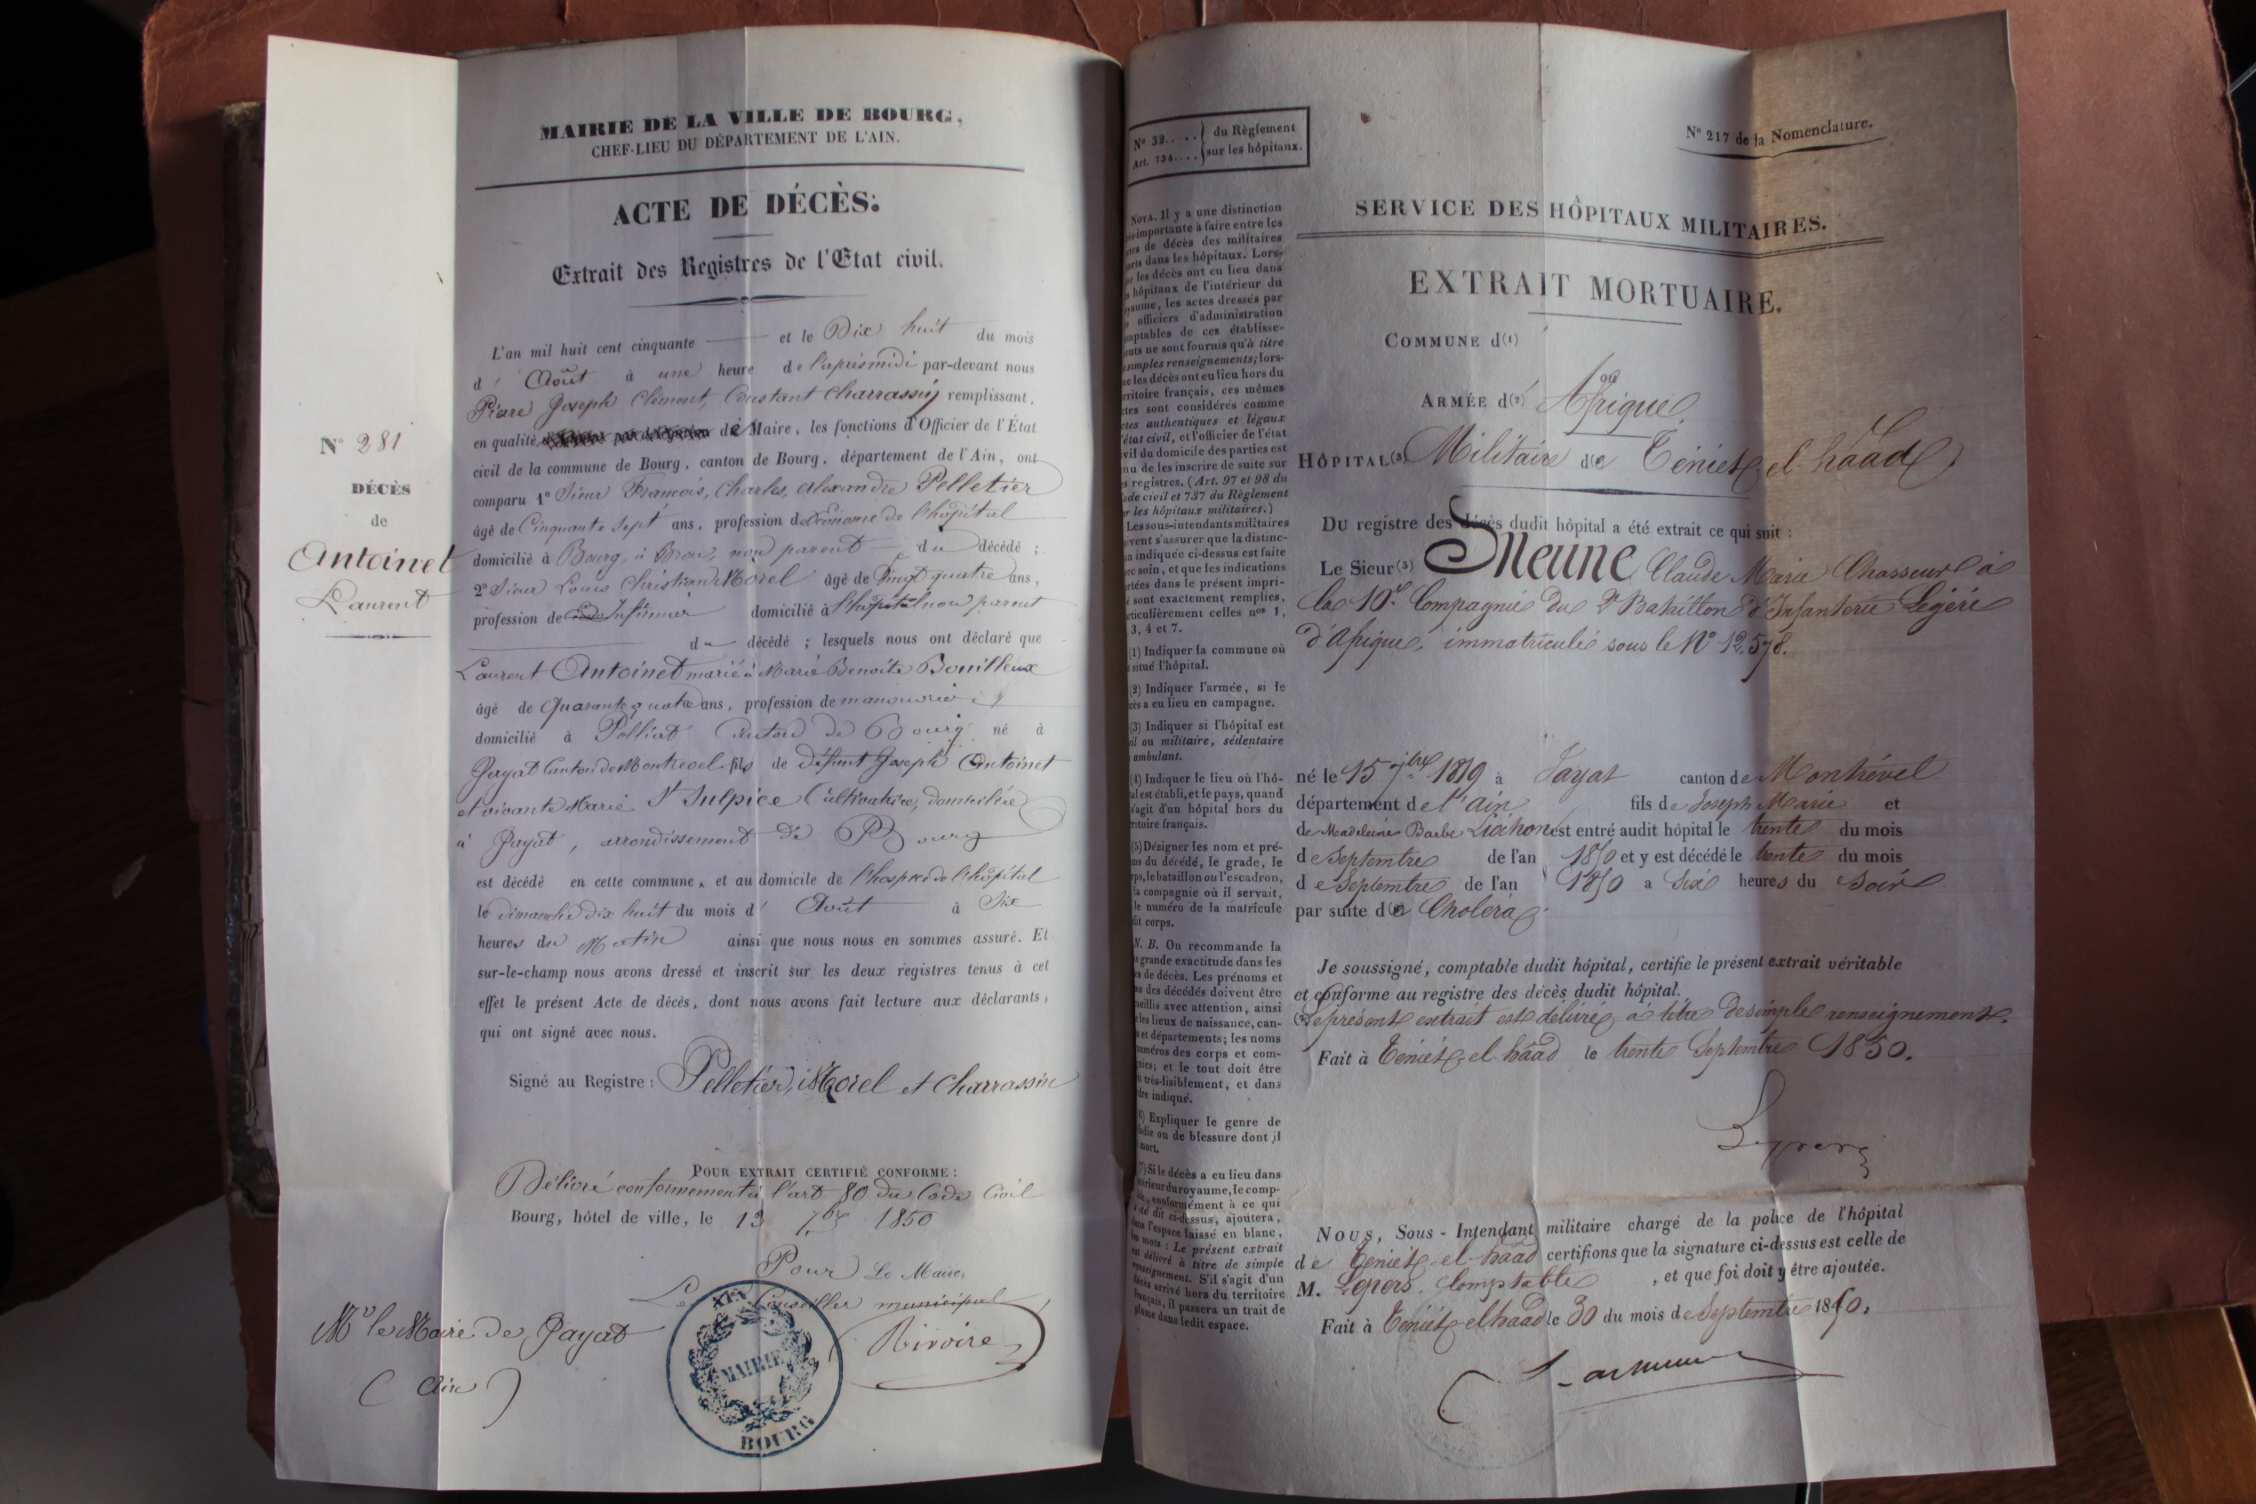 MAIRIE DE LA VILLE DE BOURG,
CHEF-LIEU DU DÉPARTEMENT DE L'AIN.
ACTE DE DÉCÈS.
Extrait des Registres de l'Etat civil.
N° 281
DÉCÈS
de
Antoinet
Laurent
L'an mil huit cent cinquante et le Dix huit du mois
d' Août à une heure de l'aprèsmidi par-devant nous
Pierre Joseph Clément, Constant Charrassin remplissant,
en qualité de Maire, les fonctions d'Officier de l'État
civil de la commune de Bourg, canton de Bourg, département de l'Ain, ont
comparu 1° Sieur François, Charles, Alexandre Pelletier
âgé de Cinquante sept ans, profession d'Économe de l'hôpital
domicilié à Bourg, à Brou, non parent du décédé ;
2° Sieur Louis Christian Morel âgé de Vingt quatre ans,
profession de Infirmier domicilié à l'hôpital non parent
du décédé ; lesquels nous ont déclaré que
Laurent Antoinet marié à Marie Benoite Bouilloux
âgé de Quarante quatre ans, profession de manouvrier
domicilié à Polliat Canton de Bourg né à
Jayat Canton de Montrevel fils de défunt Joseph Antoinet
et vivante Marie St Sulpice Cultivatrice, domiciliée
à Jayat, arrondissement de Bourg
est décédé en cette commune, et au domicile de l'hospice de l'hôpital
le dimanche dix huit du mois d' Août à Six
heures du Matin ainsi que nous nous en sommes assuré. Et
sur-le-champ nous avons dressé et inscrit sur les deux registres tenus à cet
effet le présent Acte de décès, dont nous avons fait lecture aux déclarants,
qui ont signé avec nous.
Signé au Registre : Pelletier, Morel et Charrassin
POUR EXTRAIT CERTIFIÉ CONFORME :
Délivré conformément à l'art 80 du Code Civil
Bourg, hôtel de ville, le 13 7bre 1850
Pour Le Maire,
Le Conseiller municipal
Rivoire
Mr le Maire de Jayat
(Ain)
AIN
MAIRIE
BOURG
N° 32.... du Règlement
Art. 734.... sur les hôpitaux.
N° 217 de la Nomenclature.
NOTA. Il y a une distinction
importante à faire entre les
de décès des militaires
dans les hôpitaux. Lors-
les décès ont eu lieu dans
hôpitaux de l'intérieur du
les actes dressés par
officiers d'administration
de ces établisse-
ne sont fournis qu'à titre
simples renseignements ; lors-
les décès ont eu lieu hors du
territoire français, ces mêmes
sont considérés comme
authentiques et légaux
l'état civil, et l'officier de l'état
du domicile des parties est
de les inscrire de suite sur
registres. (Art. 97 et 98 du
Code civil et 737 du Règlement
les hôpitaux militaires.)
Les sous-intendants militaires
s'assurer que la distinc-
indiquée ci-dessus est faite
soin, et que les indications
dans le présent impri-
sont exactement remplies,
particulièrement celles nos 1,
3, 4 et 7.
(1) Indiquer la commune où
situé l'hôpital.
(2) Indiquer l'armée, si le
a eu lieu en campagne.
(3) Indiquer si l'hôpital est
ou militaire, sédentaire
ambulant.
(4) Indiquer le lieu où l'hô-
est établi, et le pays, quand
s'agit d'un hôpital hors du
territoire français.
(5) Désigner les nom et pré-
du décédé, le grade, le
le bataillon ou l'escadron,
la compagnie où il servait,
le numéro de la matricule
dit corps.
N. B. On recommande la
grande exactitude dans les
de décès. Les prénoms et
des décédés doivent être
avec attention, ainsi
les lieux de naissance, can-
et départements ; les noms
numéros des corps et com-
et le tout doit être
très-lisiblement, et dans
indiqué.
(6) Expliquer le genre de
ou de blessure dont il
mort.
(7) Si le décès a eu lieu dans
du royaume, le comp-
conformément à ce qui
dit ci-dessus, ajoutera,
dans l'espace laissé en blanc,
les mots : Le présent extrait
est délivré à titre de simple
renseignement. S'il s'agit d'un
décès arrivé hors du territoire
français, il passera un trait de
plume dans ledit espace.
SERVICE DES HÔPITAUX MILITAIRES.
EXTRAIT MORTUAIRE.
COMMUNE d(1)
ou
ARMÉE d(2) Afrique
HÔPITAL(3) Militaire de Téniet el haad
Du registre des décès dudit hôpital a été extrait ce qui suit :
Le Sieur(5) Meune Claude Marie Chasseur à
la 10e Compagnie du 2e Bataillon d'Infanterie Légère
d'Afrique, immatriculé sous le N° 12,578.
né le 15 7bre 1819 à Jayat canton de Montrével
département de l'ain fils de Joseph Marie et
de Madeleine Barbe Liochon est entré audit hôpital le trente du mois
de Septembre de l'an 1850 et y est décédé le trente du mois
de Septembre de l'an 1850 à Six heures du soir
par suite de Choléra
Je soussigné, comptable dudit hôpital, certifie le présent extrait véritable
et conforme au registre des décès dudit hôpital.
(7) Le présent extrait est délivré à titre de simple renseignement.
Fait à Téniet el haad le trente Septembre 1850.
NOUS, Sous-Intendant militaire chargé de la police de l'hôpital
de Téniet el haad certifions que la signature ci-dessus est celle de
M. Lepers, Comptable, et que foi doit y être ajoutée.
Fait à Téniet el haad le 30 du mois de Septembre 1850.